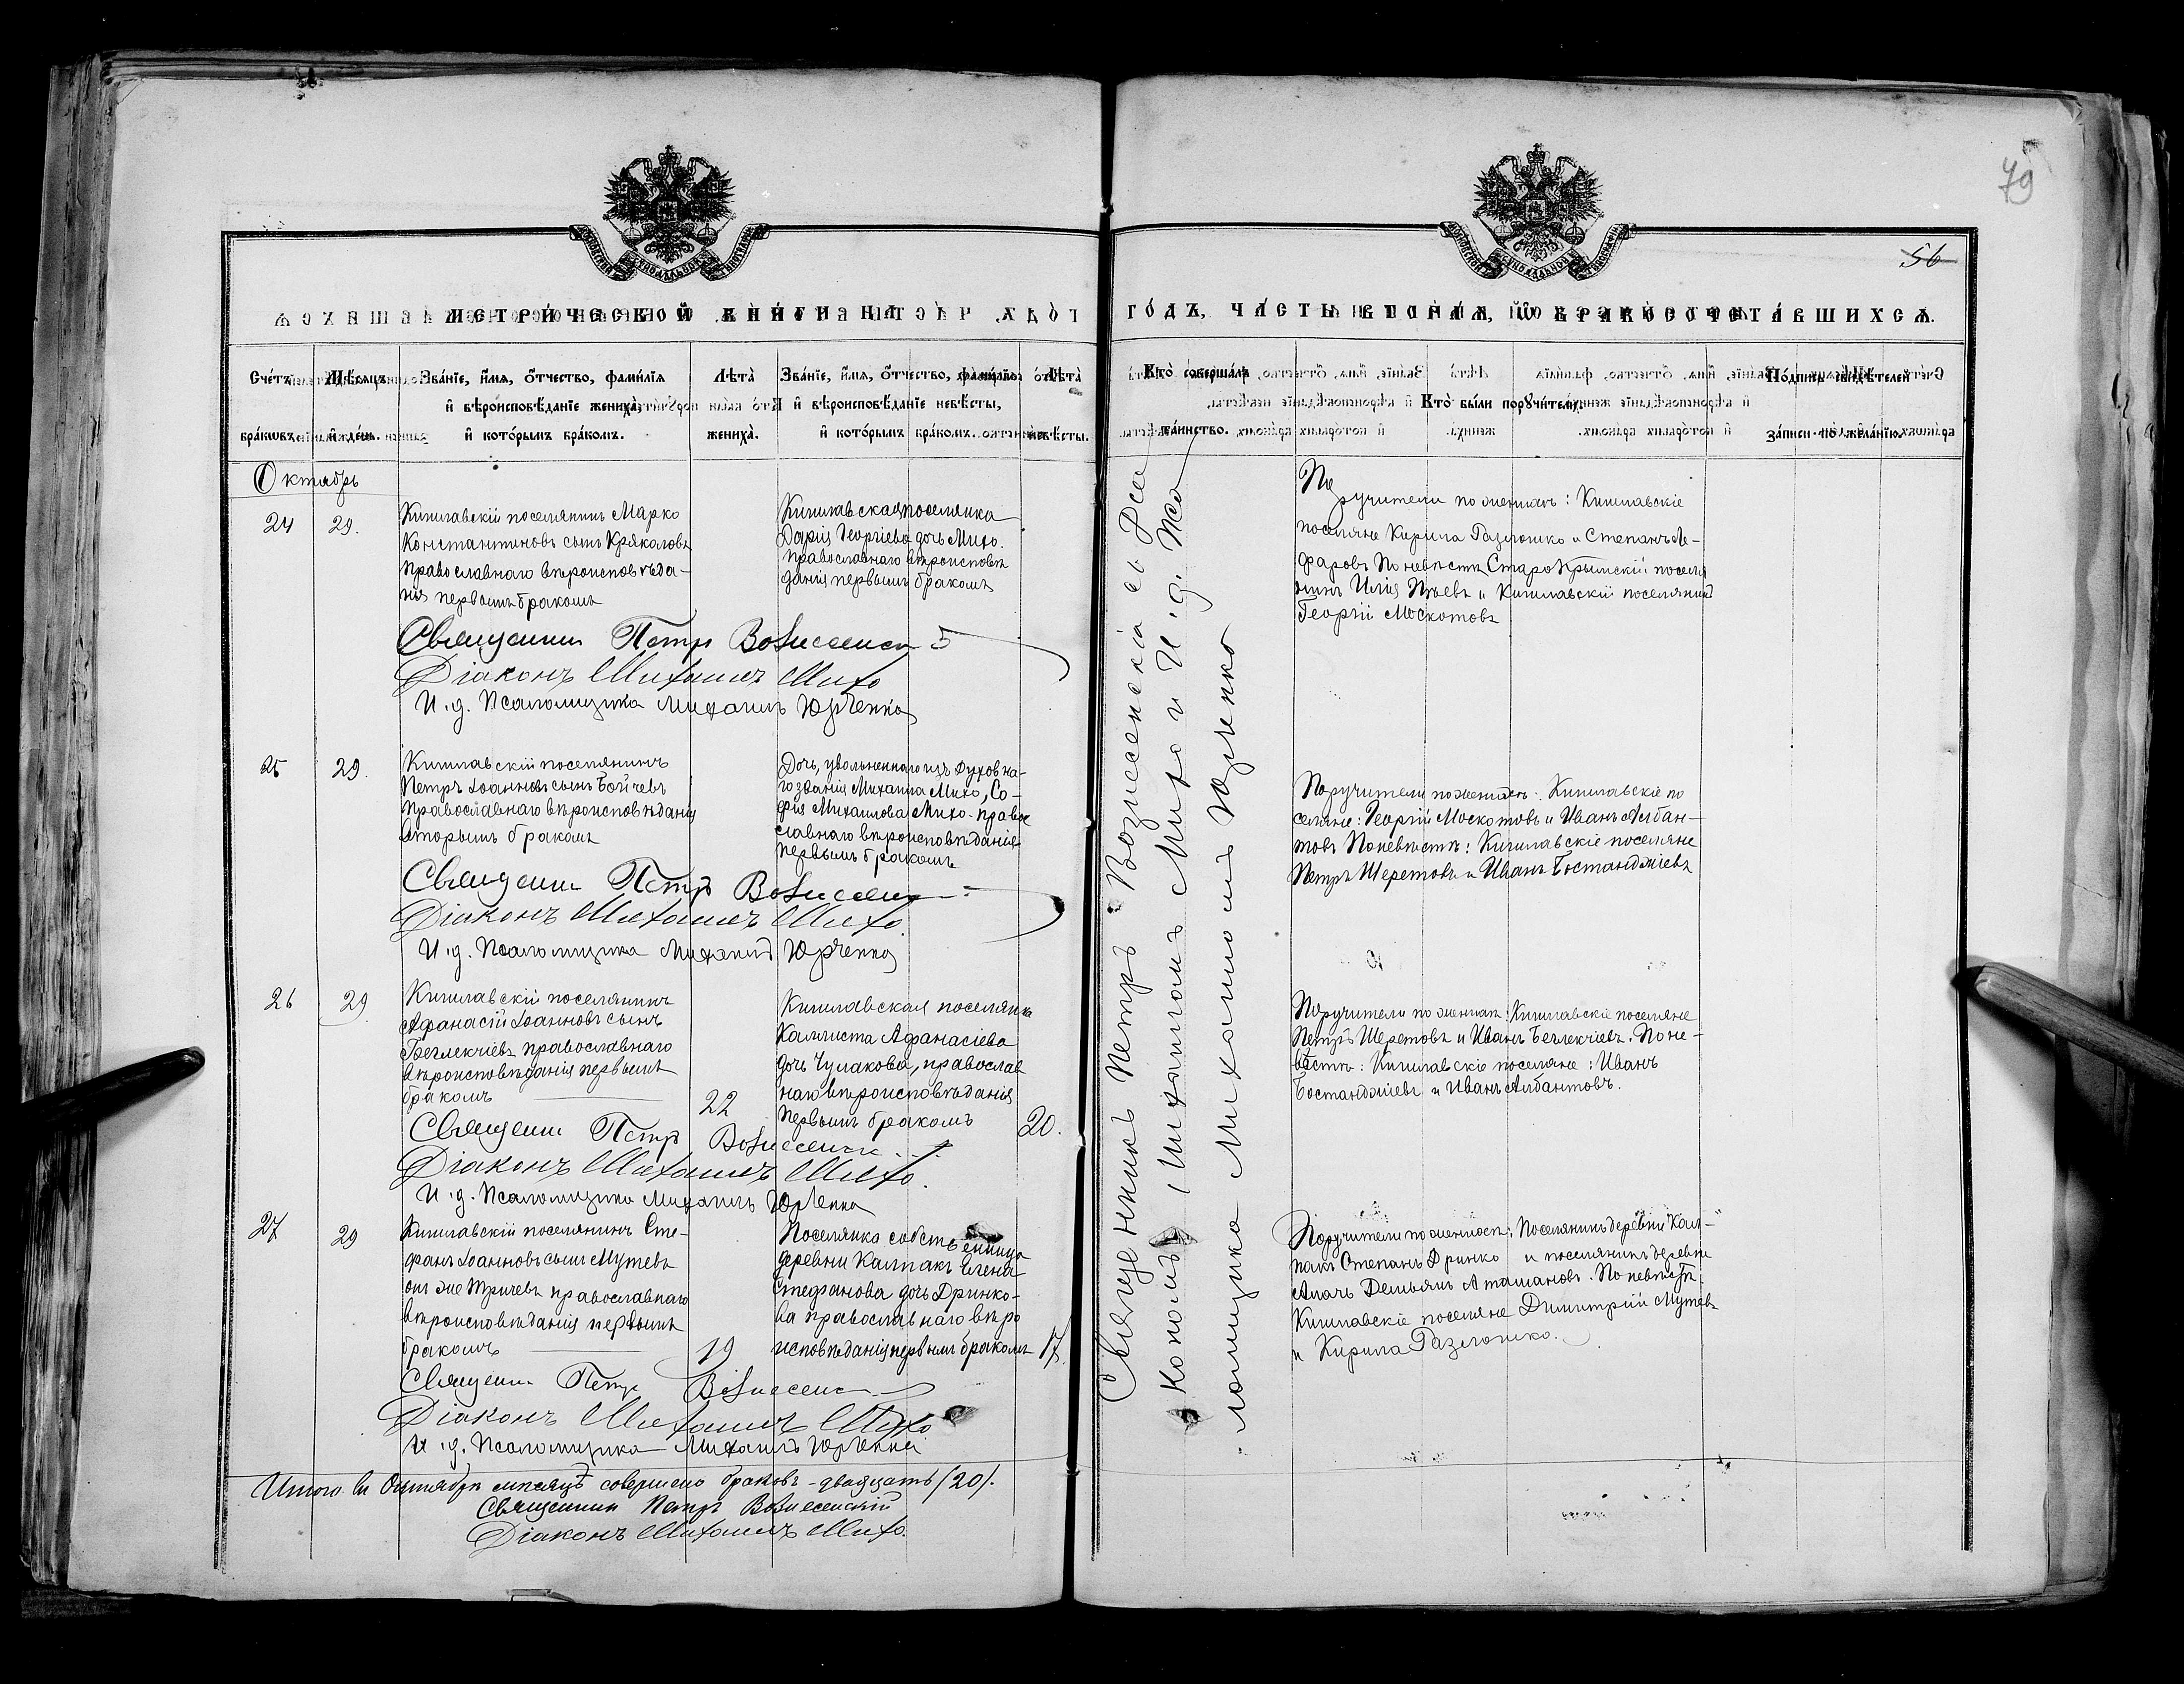 79
56
МЕТРИЧЕСКОЙ КНИГИ НА ГОДЪ, ЧАСТЬ ВТОРАЯ, Ѡ БРАКОСОЧЕТАВШИХСЯ.
Счетъ браковъ.
Мѣсяцъ и день.
Званіе, имя, отчество, фамилія
и вѣроисповѣданіе жениха,
и которымъ бракомъ.
Лѣта
жениха.
Званіе, имя, отчество, фамилія
и вѣроисповѣданіе невѣсты,
и которымъ бракомъ.
Лѣта
невѣсты.
Кто совершалъ
таинство.
Кто были поручители.
Подпись свидѣтелей
записи по желанію.
Октябрь
24
29.
Кишлавскій поселянинъ Марко
Константиновъ сынъ Кряколовъ
православнаго вѣроисповѣда-
нія первымъ бракомъ
Кишлавская поселянка
Дарія Георгіева дочь Михо.
православнаго вѣроисповѣ
данія первымъ бракомъ
Поручители по женихѣ: Кишлавскіе
поселяне Кирила Разлошко и Степанъ
По невѣстѣ Старокрымскій поселя
нинъ Илія и Кишлавскій поселянинъ
Георгій Москотовъ
Священникъ Петръ Вознесенскій
Діаконъ Михаилъ Михо
И.д. Псаломщика Михаилъ Юрченко
25
29.
Кишлавскій поселянинъ
Петръ Іоанновъ сынъ Бойчевъ
православнаго вѣроисповѣданія
вторымъ бракомъ
Дочь, увольненнаго изъ духовна-
го званія Михаила Михо, Со-
фія Михаилова Михо. право
славнаго вѣроисповѣданія
первымъ бракомъ
Поручители по женихѣ: Кишлавскіе по
селяне: Георгій Москотовъ и Иванъ Албан-
товъ По невѣстѣ: Кишлавскіе поселяне
Петръ Шеретовъ и Иванъ Бостанджіевъ
Священникъ Петръ Вознесенскій
Діаконъ Михаилъ Михо.
И.д. Псаломщика Михаилъ Юрченко
26
29.
Кишлавскій поселянинъ
Афанасій Іоанновъ сынъ
Беглекчіевъ православнаго
вѣроисповѣданія первымъ
бракомъ
22
Кишлавская поселянка
Каллиста Афанасіева
дочь Чулакова, православ
наго вѣроисповѣданія
первымъ бракомъ
20.
Поручители по женихѣ: Кишлавскіе поселяне
Петръ Шеретовъ и Иванъ Беглекчіевъ. По не-
вѣстѣ: Кишлавскіе поселяне: Иванъ
Бостанджіевъ и Иванъ Албантовъ.
Священникъ Петръ Вознесенскій
Діаконъ Михаилъ Михо.
И.д. Псаломщика Михаилъ Юрченко
27
29
Кишлавскій поселянинъ Сте-
фанъ Іоанновъ сынъ Мутевъ
онъ же православнаго
вѣроисповѣданія первымъ
бракомъ
19
Поселянка собственница
деревни Калпакъ Елена
Стефанова дочь Дринко-
ва православнаго вѣро
исповѣданія первымъ бракомъ
17.
Поручители по женихѣ: Поселянинъ деревни Кал-
пакъ Степанъ Дринко и поселянинъ деревни
Демьянъ Аташановъ. По невѣстѣ:
Кишлавскіе поселяне Димитрій Мутевъ
и Кирила Разлошко.
Священникъ Петръ Вознесенскій
Діаконъ Михаилъ Михо
И.д. Псаломщика Михаилъ Юрченко
Итого въ Октябрѣ мѣсяцѣ совершено браковъ - двадцать (20).
Священникъ Петръ Вознесенскій
Діаконъ Михаилъ Михо.
Священникъ Петръ Вознесенскій съ
кономъ Михаиломъ Михо и И.д. Пса
ломщика Михаиломъ Юрченко